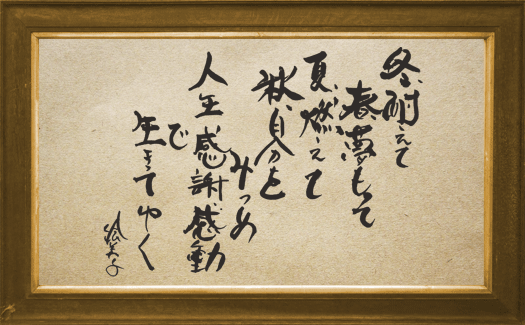 冬耐えて
春夢もって
夏燃えて
秋自分を
みつめ
人生感謝感動
で
生きてゆく